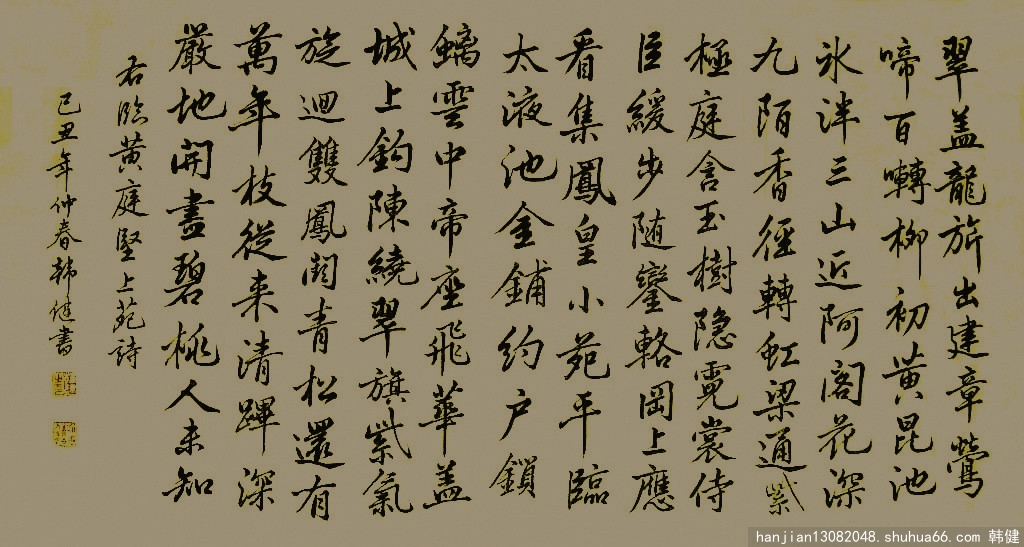 翠盖龍旂出建章鶯
啼百囀柳初黃昆池
冰泮三山近阿閣花深
九陌香徑轉虹梁通紫
極庭含玉樹隐霓裳侍
臣緩步随鑾輅岡上應
看集鳳皇小苑平臨
太液池金鋪約户鎖
螭雲中帝座飛華盖
城上鈎陳繞翠旗紫氣
旋迴雙鳳闕青松還有
萬年枝從来清蹕深
嚴地開盡碧桃人未知
右臨黃庭堅上苑詩
己丑年仲春韩健書
hanjian13082048. shuhua66. com 韩健